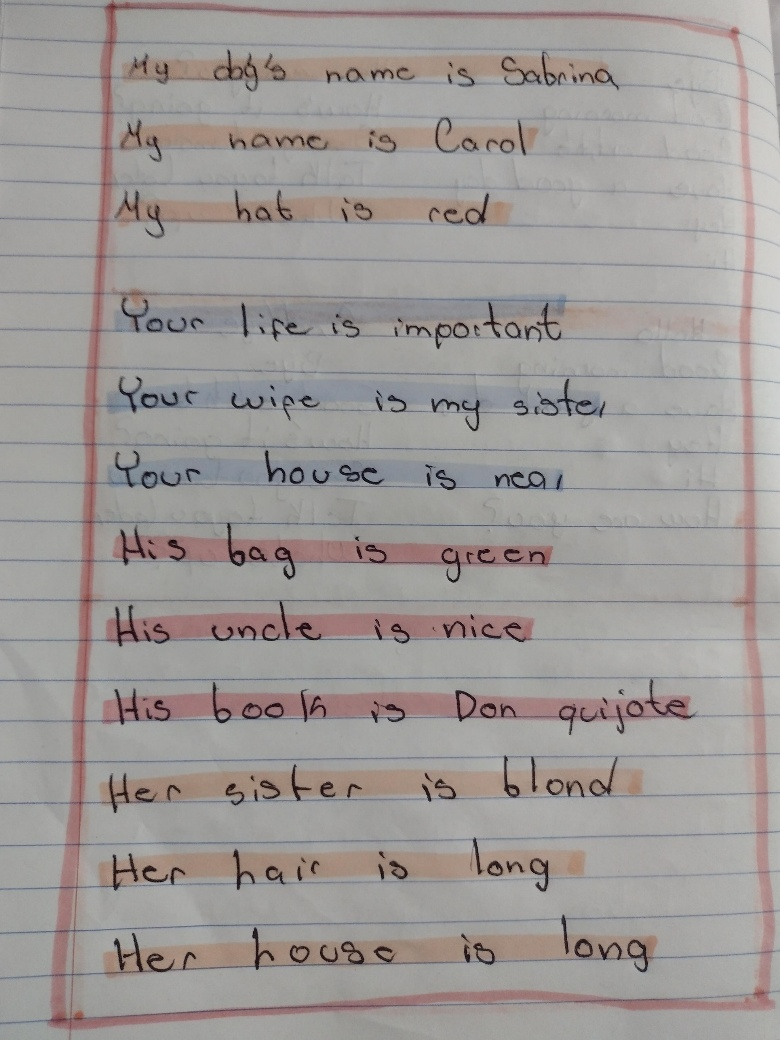 My dog's name is Sabrina
My name is Carol
My hat is red
Your life is important
Your wife is my sister
Your house is near
His bag is green
His uncle is nice
His book is Don quijote
Her sister is blond
Her hair is long
Her house is long